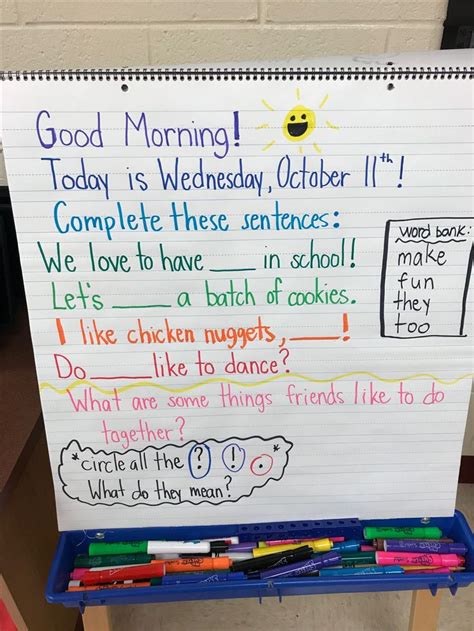 Good Morning!
Today is Wednesday, October 11th!
Complete these sentences:
We love to have ____ in school!
Let's _____ a batch of cookies.
I like chicken nuggets, ____!
Do _____ like to dance?
word bank:
make
fun
they
too
What are some things friends like to do
together?
*circle all the ? ! .*
What do they mean?